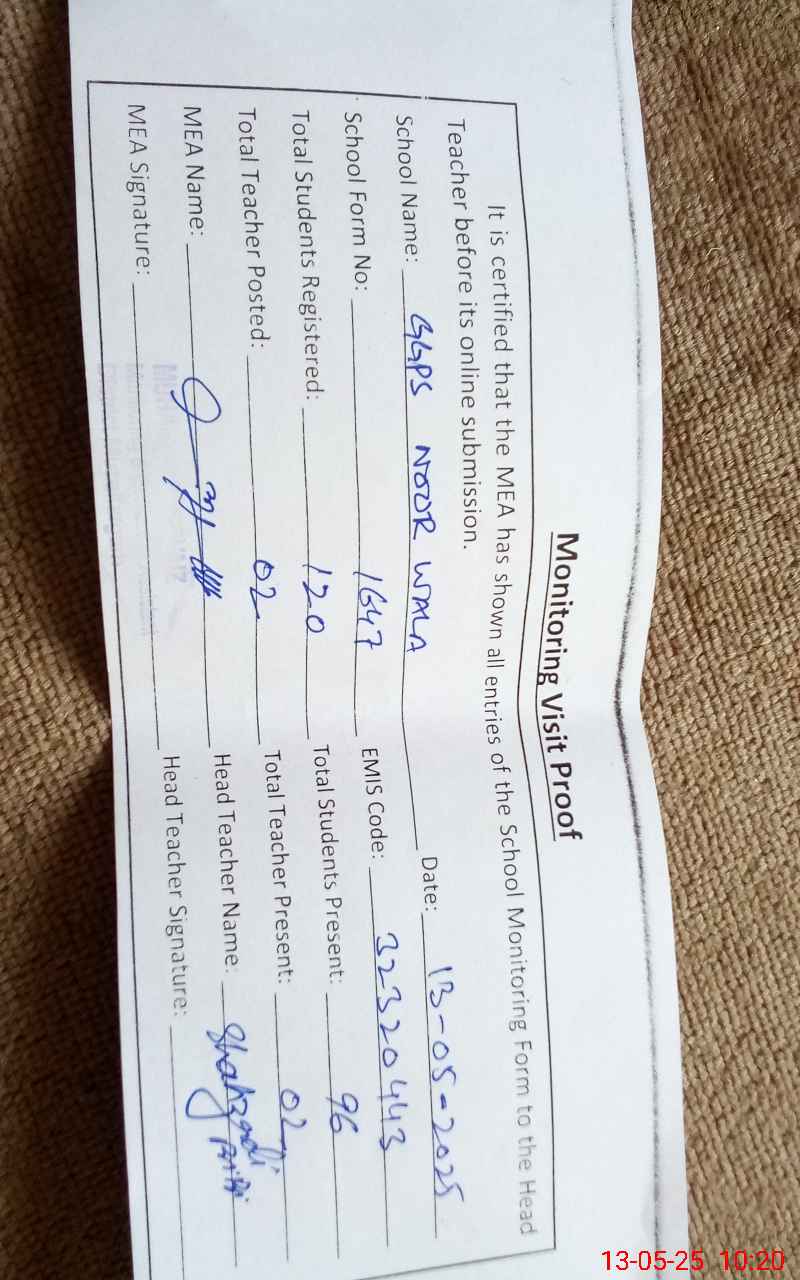 Monitoring Visit Proof
It is certified that the MEA has shown all entries of the School Monitoring Form to the Head
Teacher before its online submission.
School Name: GGPS NOOR WALA Date: 13-05-2025
School Form No: 1647 EMIS Code: 32320443
Total Students Registered: 120 Total Students Present: 96
Total Teacher Posted: 02 Total Teacher Present: 02
MEA Name: Head Teacher Name: Shahzadi Bibi
MEA Signature: Head Teacher Signature:
13-05-25 10:20